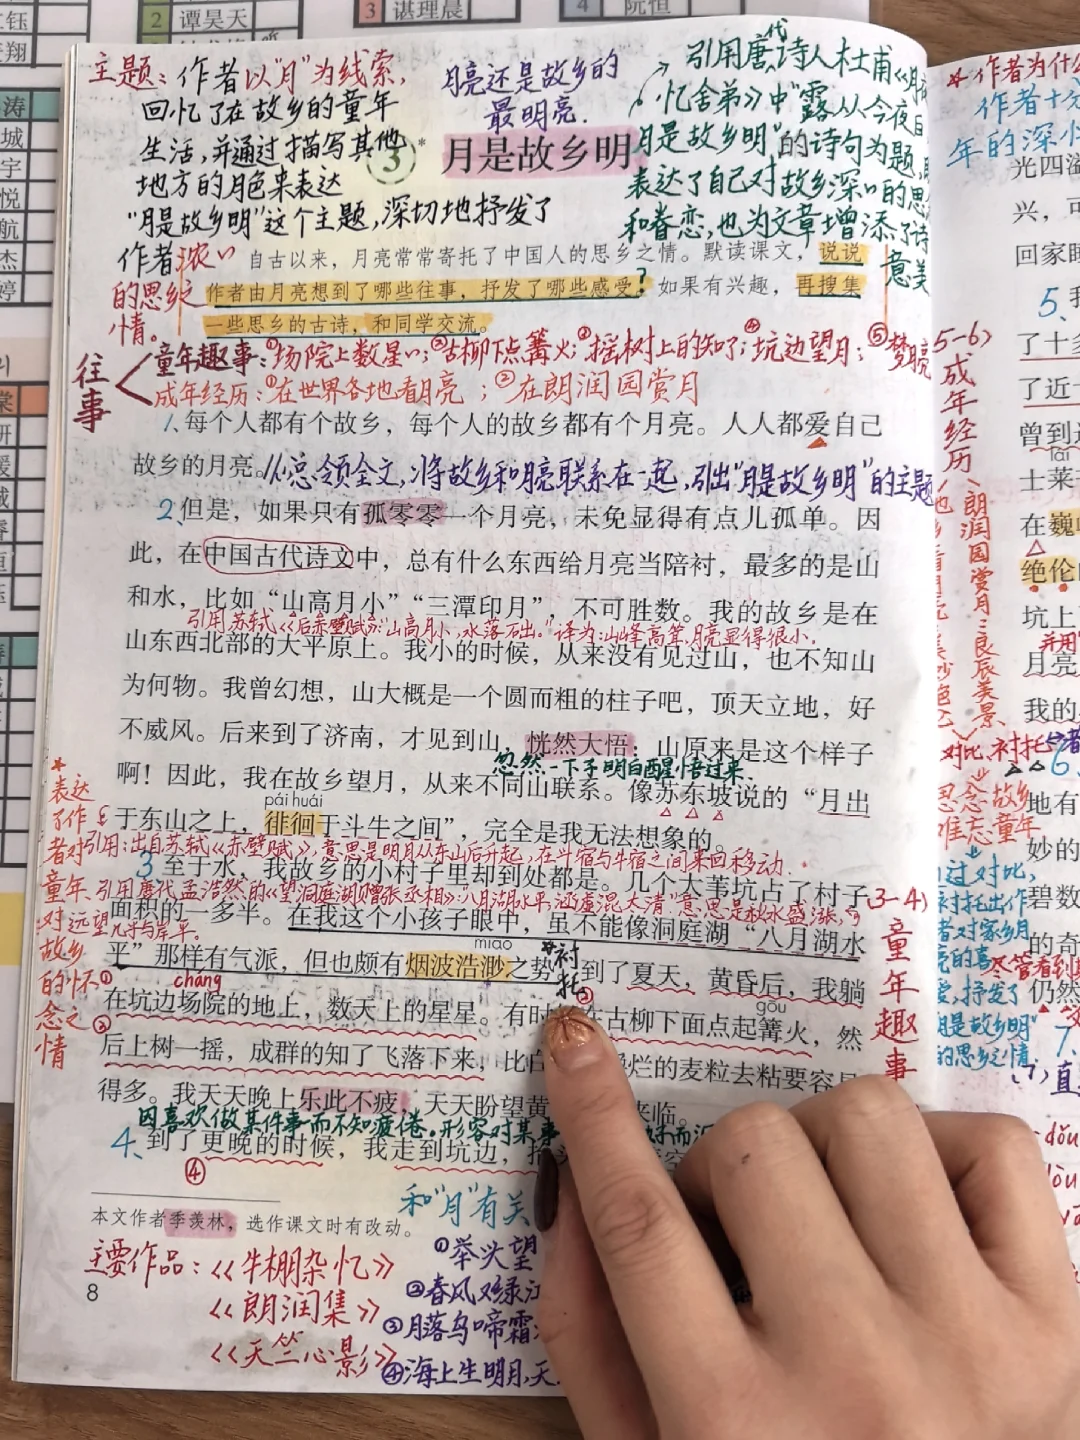 谌理晨
2 谭昊天
3
4 阮恒
主题：作者以"月"为线索，
回忆了在故乡的童年
生活，并通过描写其他
地方的月色来表达
"月是故乡明"这个主题，深切地抒发了
作者浓浓
的思乡之
情。
月亮还是故乡的
最明亮．
引用唐代诗人杜甫《月夜
忆舍弟》中"露从今夜白
月是故乡明"的诗句为题，
表达了自己对故乡深深的思
和眷恋，也为文章增添了诗
意美
3* 月是故乡明
自古以来，月亮常常寄托了中国人的思乡之情。默读课文，说说
作者由月亮想到了哪些往事，抒发了哪些感受？如果有兴趣，再搜集
一些思乡的古诗，和同学交流。
往事
童年趣事：①场院上数星星；②古柳下点篝火；③摇树上的知了；④坑边望月；⑤梦
成年经历：①在世界各地看月亮；②在朗润园赏月
1、每个人都有个故乡，每个人的故乡都有个月亮。人人都爱自己
故乡的月亮。
总领全文，将故乡和月亮联系在一起，引出"月是故乡明"的主题
2、但是，如果只有孤零零一个月亮，未免显得有点儿孤单。因
此，在中国古代诗文中，总有什么东西给月亮当陪衬，最多的是山
和水，比如"山高月小""三潭印月"，不可胜数。我的故乡是在
引用苏轼《后赤壁赋》："山高月小，水落石出。"译为：山峰高耸，月亮显得很小．
山东西北部的大平原上。我小的时候，从来没有见过山，也不知山
为何物。我曾幻想，山大概是一个圆而粗的柱子吧，顶天立地，好
不威风。后来到了济南，才见到山，恍然大悟：山原来是这个样子
忽然一下子明白醒悟过来．
啊！因此，我在故乡望月，从来不同山联系。像苏东坡说的"月出
pái huái
于东山之上，徘徊于斗牛之间"，完全是我无法想象的。
引用：出自苏轼《赤壁赋》，意思是明月从东山后升起，在斗宿与牛宿之间来回移动．
3 至于水，我故乡的小村子里却到处都是。几个大苇坑占了村子
引用唐代孟浩然的《望洞庭湖赠张丞相》："八月湖水平，涵虚混太清"意思是秋水盛涨，
几乎与岸平。
面积的一多半。在我这个小孩子眼中，虽不能像洞庭湖"八月湖水
miǎo
平"那样有气派，但也颇有烟波浩渺之势。到了夏天，黄昏后，我躺
衬托
cháng
gōu
在坑边场院的地上，数天上的星星。有时在古柳下面点起篝火，然
后上树一摇，成群的知了飞落下来，比白
烂的麦粒去粘要容易
得多。我天天晚上乐此不疲，天天盼望黄
来临。
因喜欢做某件事而不知疲倦。形容对某事
4、到了更晚的时候，我走到坑边，抬
④
★表达
了作
者对
童年、
对远望
故乡
的怀
念之
情
(3-4)
童年趣事
本文作者季羡林，选作课文时有改动。
主要作品：《牛棚杂忆》
《朗润集》
《天竺心影》
8
和"月"有关
①举头望
②春风又绿江
③月落乌啼霜
④海上生明月，天
★作者为什么
作者十分
年的深情
光四溢
兴，可
回家睡
5、我
了十多
了近
曾到过
士莱
在巍
绝伦
坑上
并用
月亮
我的
5-6)
成年经历
朗润园赏月：良辰美景
对比、衬托
思念故乡
难忘童年
过对比，
衬托出作
者对家乡月
亮的喜
爱，抒发了
月是故乡明"
的思乡之情
6
地有
妙的
碧数
的奇
尽管看到
仍然
7、
dǒu